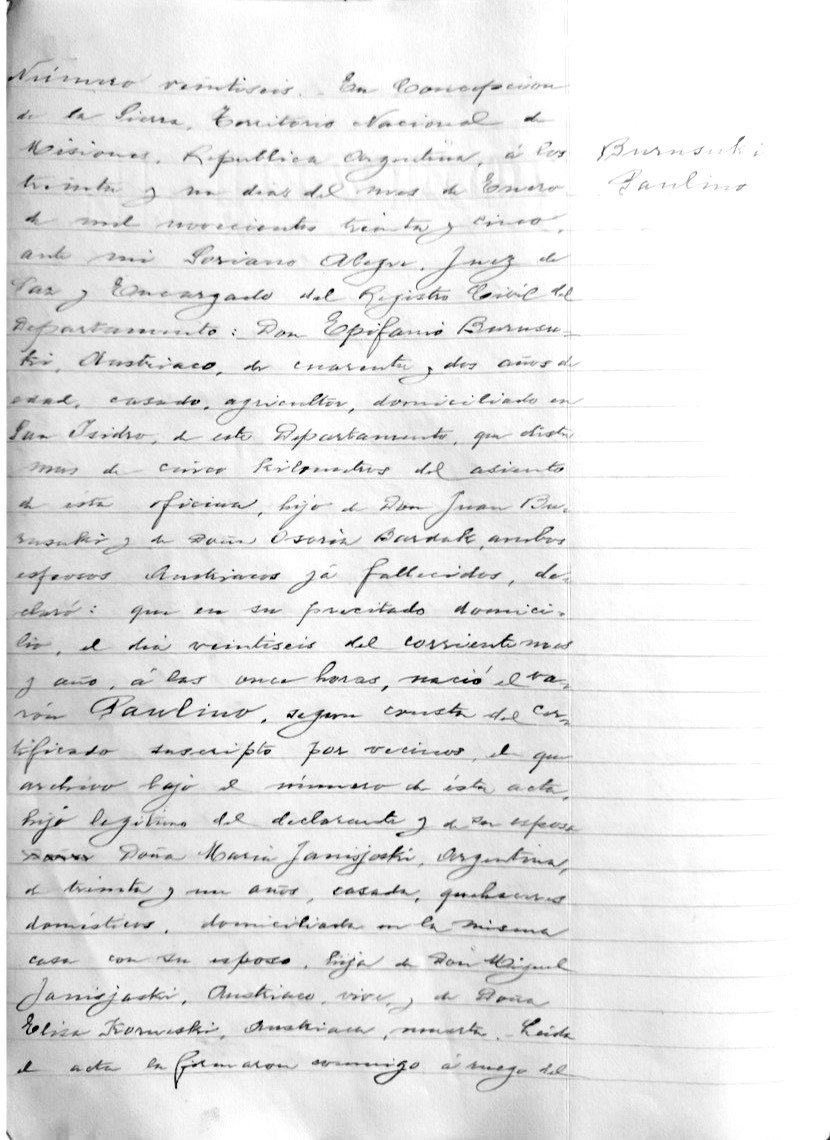 Número veintiseis. - En Concepcion
de la Sierra, Territorio Nacional de
Misiones, Republica Argentina, á los
treinta y un dias del mes de Enero
de mil novecientos treinta y cinco,
ante mi Soriano Alegre, Juez de
Paz y Encargado del Registro Civil del
Departamento: Don Epifanio Burusu-
ki, Austriaco, de cuarenta y dos años de
edad, casado, agricultor, domiciliado en
San Isidro, de este Departamento, que dista
mas de cinco kilometros del asiento
de ésta oficina, hijo de Don Juan Bu-
rusuki y de Doña Osoria Bardak, ambos
esposos Austriacos já fallecidos, de-
claró: que en su precitado domici-
lio, el dia veintiseis del corriente mes
y año, á las once horas, nació el va-
rón Paulino, segun consta del cer-
tificado suscripto por vecinos, el que
archivo bajo el número de ésta acta,
hijo legitimo del declarante y de su esposa
Doña Maria Janisjoski, Argentina,
de treinta y un años, casada, quehaceres
domésticos, domiciliada en la misma
casa con su esposo, hija de Don Miguel
Janisjaski, Austriaco, vive, y de Doña
Elisa Korueski, Austriaca, muerta. - Leida
el acta la firmaron conmigo á ruego del
Burusuki
Paulino